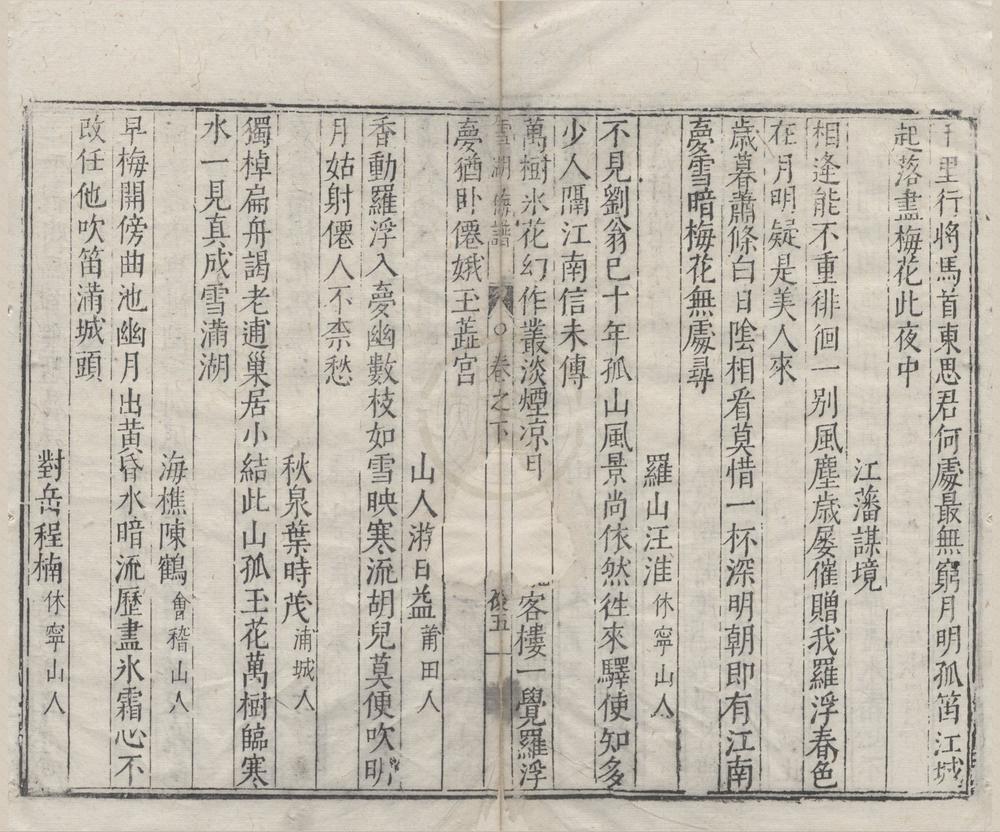 千里行將馬首東思君何處最無窮月明孤笛江城
起落盡梅花此夜中
江藩謀㙺
相逢能不重徘徊一别風塵歳屡催贈我羅浮春色
在月明疑是美人來
歳暮蕭條白日陰相看莫惜一杯深明朝即有江南
夢雪暗梅花無處尋
羅山汪淮休寧山人
不見劉翁已十年孤山風景尚依然徃來驛使知多
少人隔江南信未傳
萬樹氷花幻作叢淡煙凉月客樓一覺羅浮
雪湖梅譜 卷之下 後五
夢猶卧僊娥玉蘂宮
山人游日益莆田人
香動羅浮入夢幽數枝如雪映寒流胡兒莫便吹明
月姑射僊人不柰愁
秋泉葉時茂浦城人
獨棹扁舟謁老逋巢居小結此山孤玉花萬樹臨寒
水一見真成雪滿湖
海樵陳鶴會稽山人
早梅開傍曲池幽月出黃昏水暗流歷盡氷霜心不
改任他吹笛滿城頭
對岳程楠休寧山人